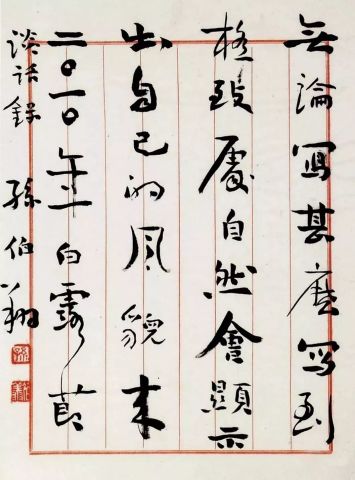 無論寫甚麼寫到
極致處自然會顯示
出自己的風貌來
二〇一〇年白露節
談話錄 孫伯翔